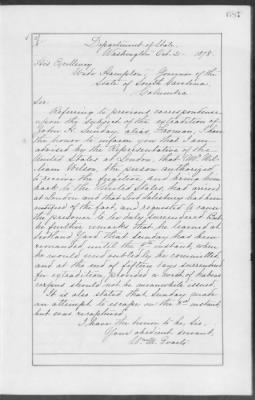 Department of State,
Washington Oct. 2 1878.
His Excellency
Wade Hampton, Governor of the
State of South Carolina
Columbia
Sir:
Referring to previous correspondence
upon the subject of the extradition of
John H. Sunday, alias Froman, I have
the honor to inform you that I am
advised by the Representative of the
United States at London, that Mr. Wil-
liam Wilson, the person authorized
to receive the fugitive and bring him
back to the United States, had arrived
at London and that Lord Salisbury had been
notified of the fact, and requested to cause
the prisoner to be duly surrendered. But
he further remarks that he learns at
Scotland Yard that Sunday has been
remanded until the instant, when
he would undoubtedly be committed,
and at the end of fifteen days surrendered
for extradition, provided a writ of habeas
corpus should not be meanwhile issued.
It is also stated that Sunday made
an attempt to escape on the instant
but was recaptured.
I have the honor to be, Sir,
Your obedient servant,
Wm. M. Evarts